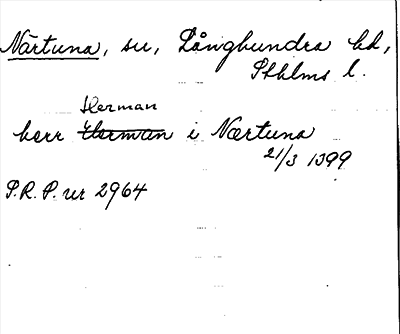 Närtuna, su, Långhundra hd,
Sthlms l.
Herman
herr Herman i Nærtuna
21/3 1399
S.R.P. nr 2964